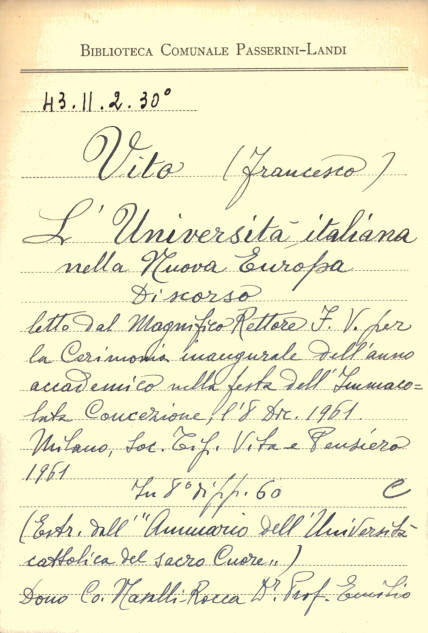 BIBLIOTECA COMUNALE PASSERINI-LANDI
43.II.2.30°
Vito (Francesco)
L'Università italiana
nella Nuova Europa
Discorso
letto dal Magnifico Rettore F. V. per
la Cerimonia inaugurale dell'anno
accademico nella festa dell'Immaco=
lata Concezione, l'8 Dic. 1961.
Milano, Soc. Tip. Vita e Pensiero
1961
In 8° di pp. 60 C
(Estr. dall'"Annuario dell'Università
cattolica del sacro Cuore„)
Dono Co. Nasalli-Rocca Dr. Prof. Emilio